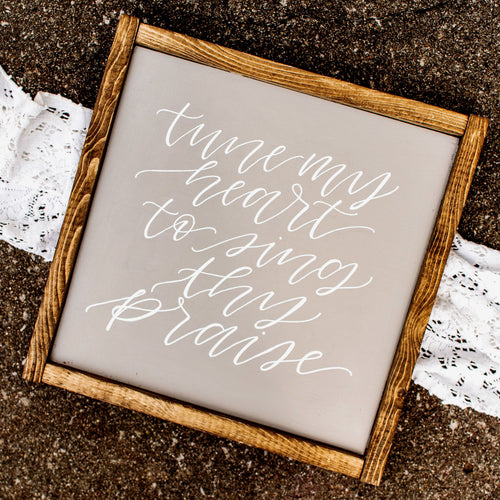 tune my
heart
to sing
thy
praise